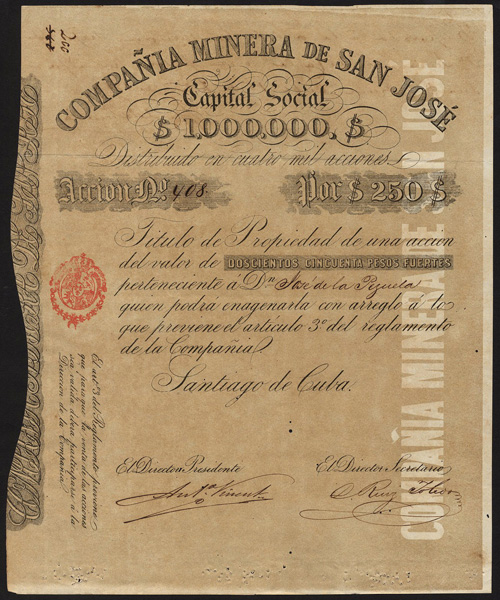 200
COMPAÑIA MINERA DE SAN JOSÉ
Capital Social
$ 1.000,000, $
Distribuido en cuatro mil acciones.
Accion No. 408
Por $ 250 $
Título de Propiedad de una accion
del valor de DOSCIENTOS CINCUENTA PESOS FUERTES
perteneciente á Dn de la Pezuela
quien podrá enagenarla con arreglo á lo
que previene el artículo 3º del reglamento
de la Compañia
Santiago de Cuba.
El Director Presidente
El Director Secretario
Anto. Vinent
Ruiz
El artº 3 del Reglamento previene
que para que la venta de las acciones
sea valida debera participarse á la
Dirección de la Compañia
COMPAÑIA MINERA DE SAN JOSÉ